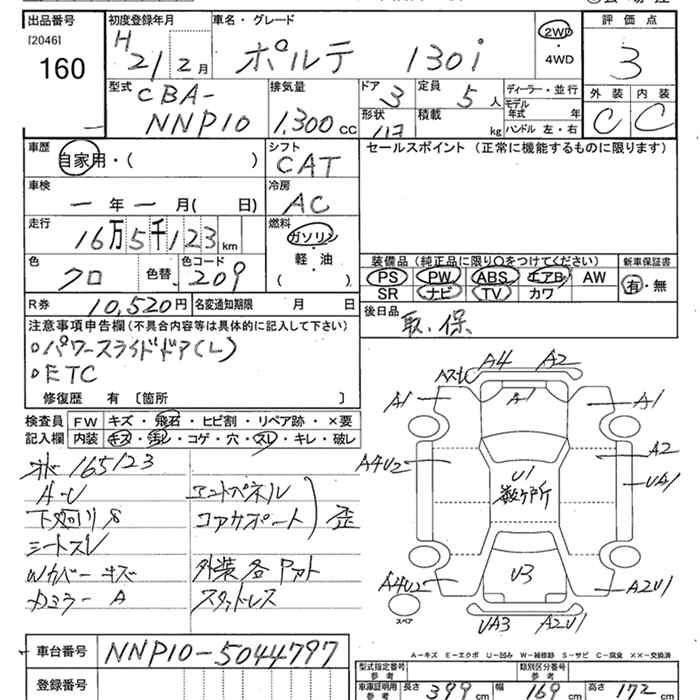 出品番号 初度登録年月 車名・グレード 評価点
[2046] H 21/2月 ポルテ 130i 2WD・4WD 3
160
型式 排気量 ドア 定員 ディーラー・並行 外装 内装
CBA-NNP10 1,300cc 3 5人 モデル年式 年 C C
形状 積載 kg ハンドル 左・右
車歴 シフト セールスポイント (正常に機能するものに限ります)
自家用・( ) CAT
車検 冷房
一年一月( 日) AC
走行 燃料
16万5千123km ガソリン・軽・油 ( )
色 色コード 装備品(純正品に限り○をつけてください) 新車保証書
クロ 色替 209 PS PW ABS エアB AW 有・無
SR ナビ TV カワ
R券 10,520円 名変通知期限 月 日 後日品 取、保
注意事項申告欄(不具合内容等は具体的に記入して下さい)
○パワースライドドア(L)
○ETC
修復歴 有 [箇所 ]
検査員 FW キズ・飛石・ヒビ割・リペア跡・×要
記入欄 内装 キズ・汚レ・コゲ・穴・スレ・キレ・破レ
165123
A-U エンドパネル
コアサポート 歪
シートスレ
Wカバーキズ 外装各
カミラー A スタットレス
A4 A2
A1 A1 A1
A4U2 A2
U1 UA1
数ヶ所
A4U2 U3 A2U1
スペア UA3 A2U1
A-キズ E-エクボ U-凹み W-補修跡 S-サビ C-腐食 ××-交換済
車台番号 NNP10-5044797
型式指定番号 参考 類別区分番号 参考
登録番号 車庫証明用 参考 長さ 399cm 幅 169cm 高さ 172cm